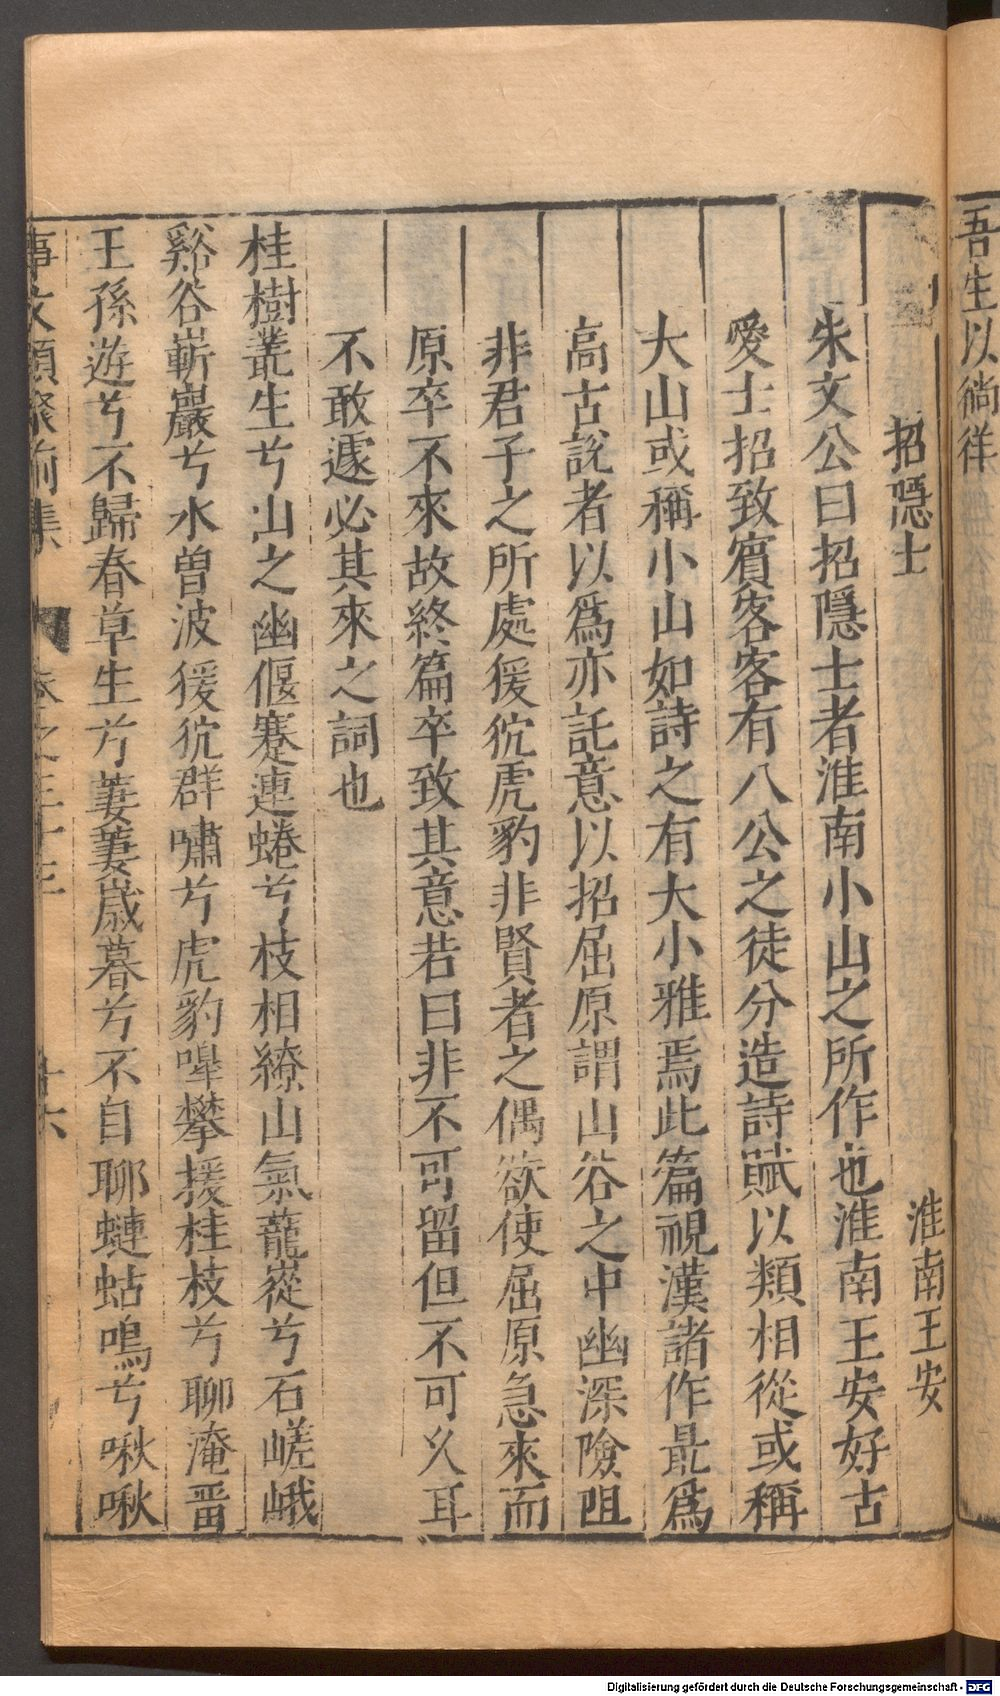 吾生以徜徉
招隱士　淮南王安
朱文公曰招隱士者淮南小山之所作也淮南王安好古
愛士招致賓客客有八公之徒分造詩賦以類相從或稱
大山或稱小山如詩之有大小雅焉此篇視漢諸作最爲
高古說者以爲亦託意以招屈原謂山谷之中幽深險阻
非君子之所處猨狖虎豹非賢者之偶欲使屈原急來而
原卒不來故終篇卒致其意若曰非不可留但不可久耳
不敢遽必其來之詞也
桂樹叢生兮山之幽偃蹇連蜷兮枝相繚山氣巃嵸兮石嵯峨
谿谷嶄巖兮水曽波猨狖群嘯兮虎豹嘷攀援桂枝兮聊淹畱
王孫遊兮不歸春草生兮萋萋歲暮兮不自聊蟪蛄鳴兮啾啾
事文類聚前集　卷之三十三　十六
Digitalisierung gefördert durch die Deutsche Forschungsgemeinschaft - DFG